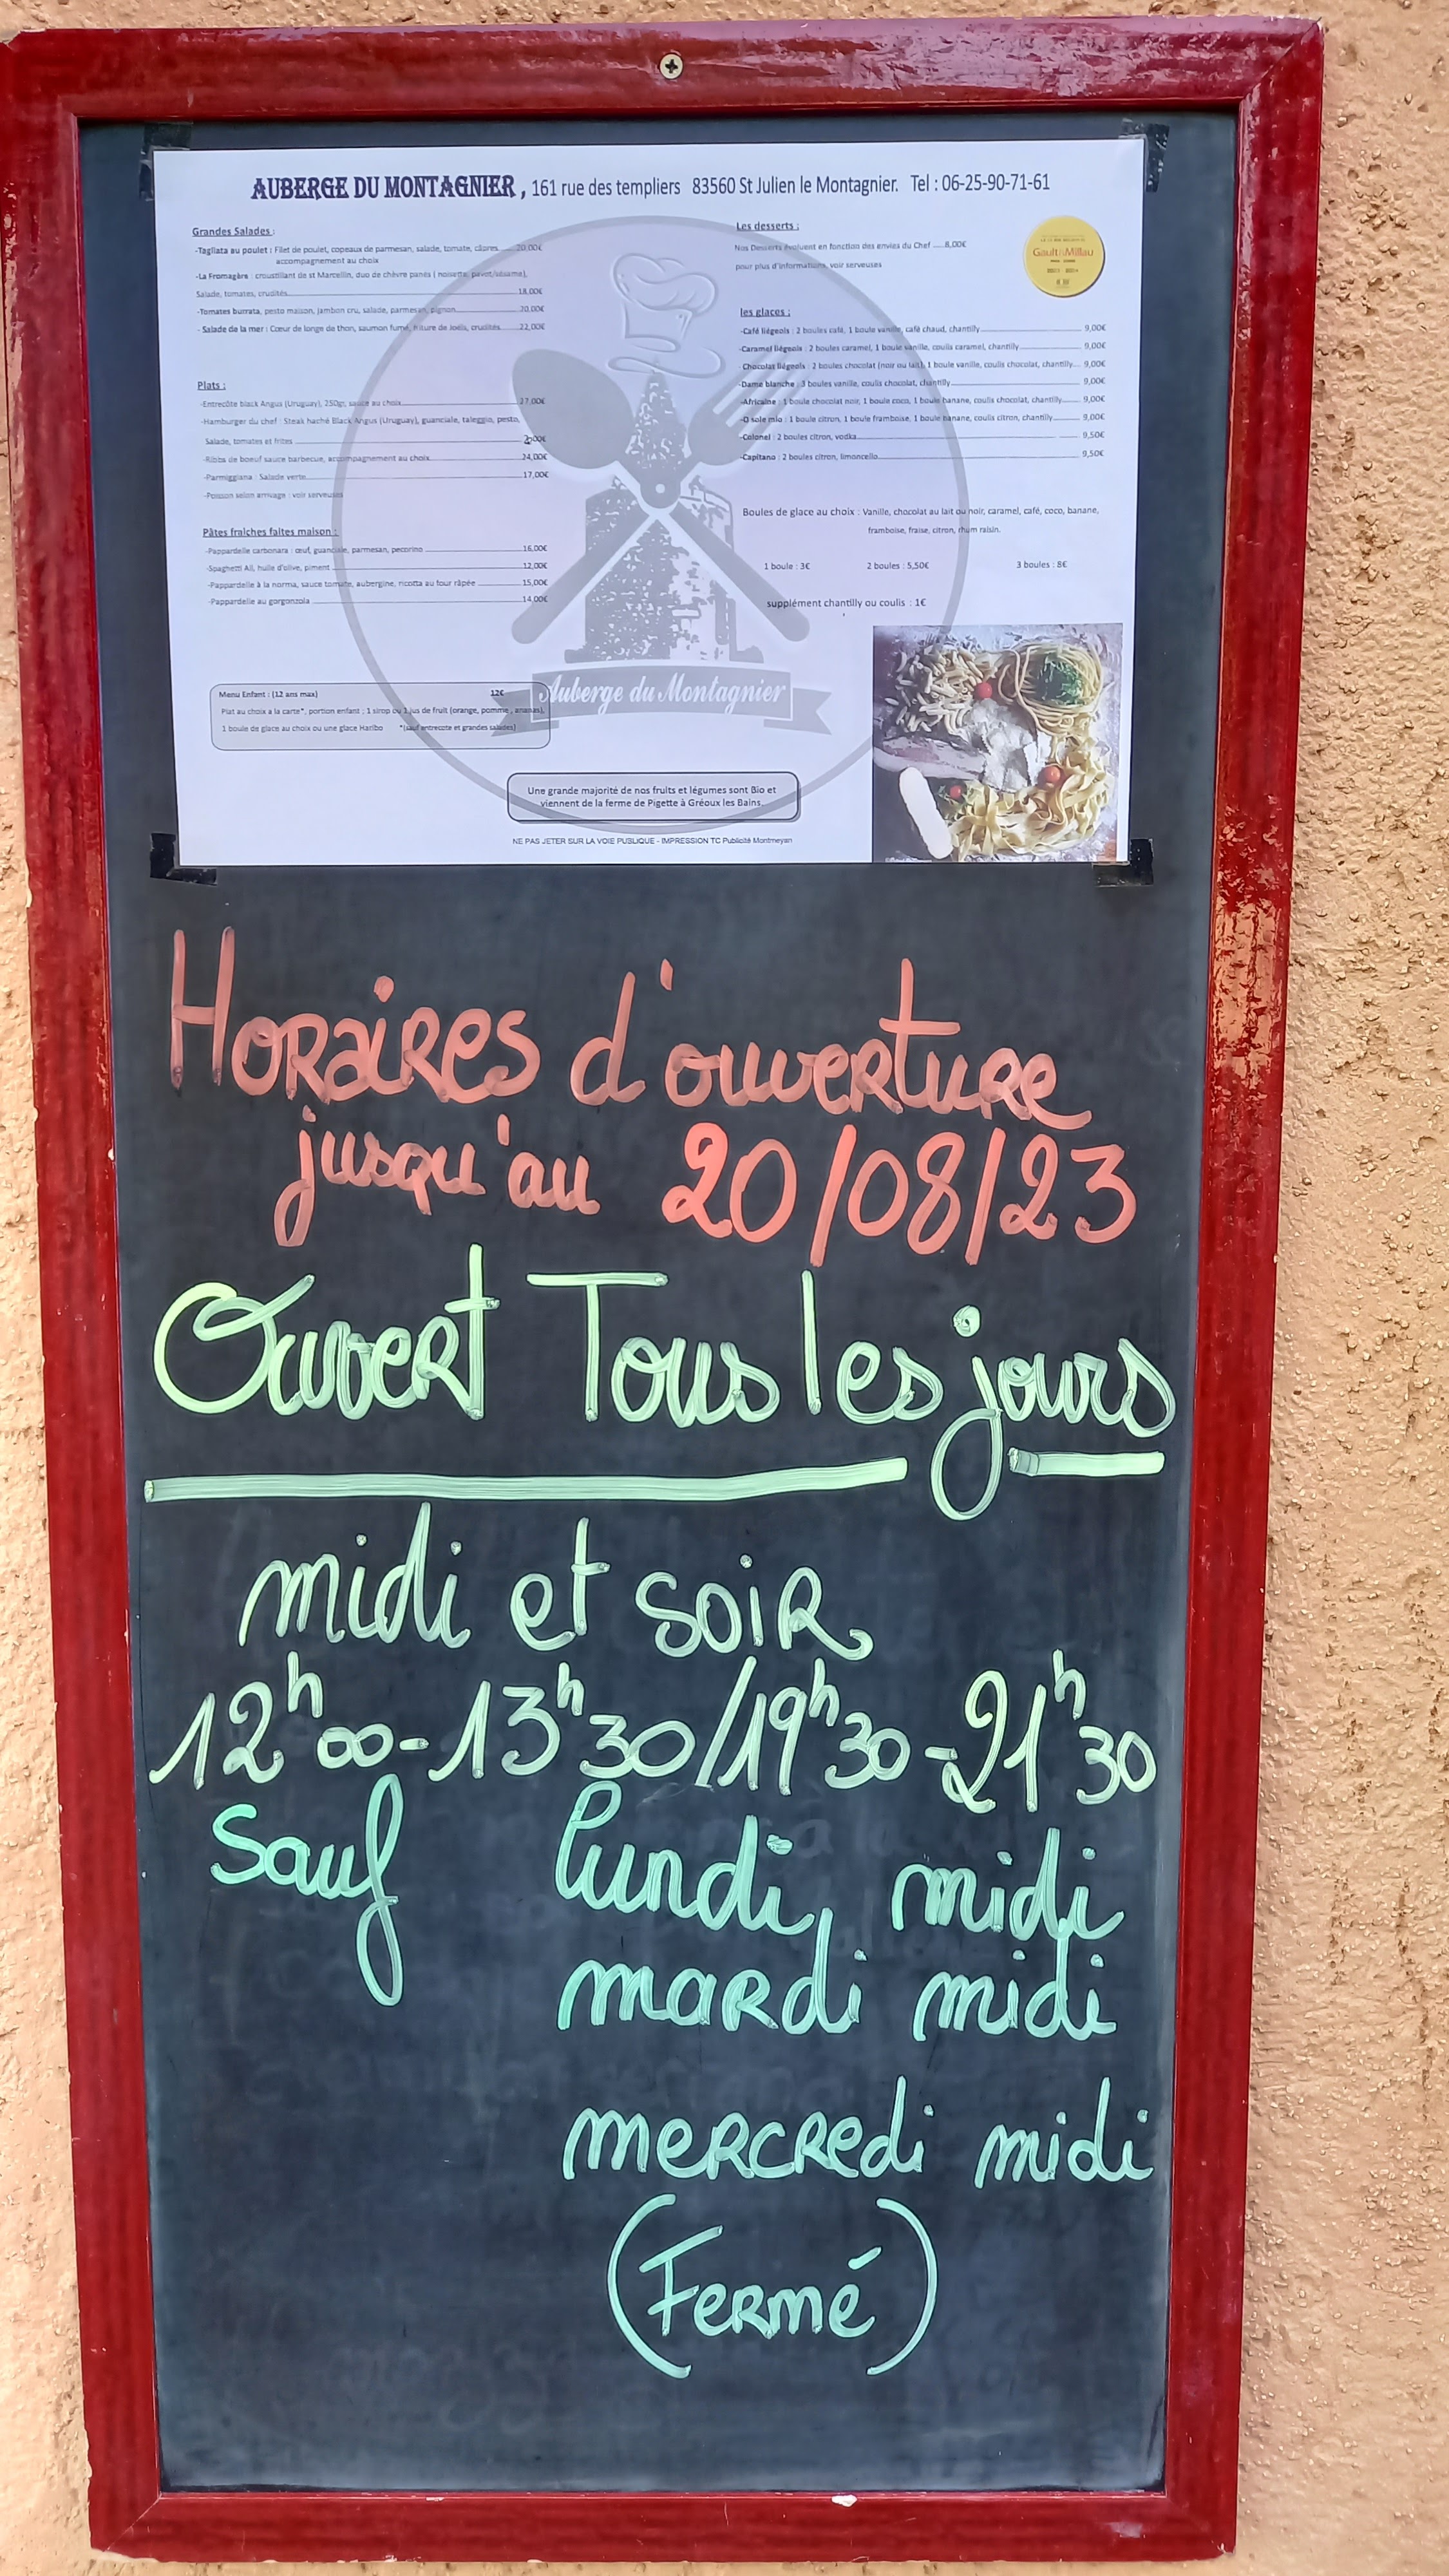 AUBERGE DU MONTAGNIER , 161 rue des templiers 83560 St Julien le Montagnier. Tel : 06-25-90-71-61
Grandes Salades :
-Tagliata au poulet : Filet de poulet, copeaux de parmesan, salade, tomate, câpres ......20,00€
accompagnement au choix
-La Fromagère : croustillant de st Marcellin, duo de chèvre panés ( noisette, pavot/sésame),
Salade, tomates, crudités......18,00€
-Tomates burrata, pesto maison, jambon cru, salade, parmesan, pignon......20,00€
- Salade de la mer : Cœur de longe de thon, saumon fumé, friture de Joëls, crudités......22,00€
Plats :
-Entrecôte black Angus (Uruguay), 250gr, sauce au choix......27,00€
-Hamburger du chef : Steak haché Black Angus (Uruguay), guanciale, taleggio, pesto,
Salade, tomates et frites
-Ribbs de boeuf sauce barbecue, accompagnement au choix......24,00€
-Parmiggiana : Salade verte......17,00€
-Poisson selon arrivage : voir serveuses
Pâtes fraîches faites maison :
-Pappardelle carbonara : œuf, guanciale, parmesan, pecorino ......16,00€
-Spaghetti Ail, huile d'olive, piment ......12,00€
-Pappardelle à la norma, sauce tomate, aubergine, ricotta au four râpée ......15,00€
-Pappardelle au gorgonzola ......14,00€
Menu Enfant : (12 ans max) 12€
Plat au choix a la carte*, portion enfant ; 1 sirop ou 1 jus de fruit (orange, pomme , ananas),
1 boule de glace au choix ou une glace Haribo *(sauf entrecote et grandes salades)
Les desserts :
Nos Desserts évoluent en fonction des envies du Chef ......8,00€
pour plus d'informations, voir serveuses
Gault&Millau
les glaces :
-Café liégeois : 2 boules café, 1 boule vanille, café chaud, chantilly......9,00€
-Caramel liégeois : 2 boules caramel, 1 boule vanille, coulis caramel, chantilly......9,00€
-Chocolat liégeois : 2 boules chocolat (noir ou lait), 1 boule vanille, coulis chocolat, chantilly......9,00€
-Dame blanche : 3 boules vanille, coulis chocolat, chantilly......9,00€
-Africaine : 1 boule chocolat noir, 1 boule coco, 1 boule banane, coulis chocolat, chantilly......9,00€
-O sole mio : 1 boule citron, 1 boule framboise, 1 boule banane, coulis citron, chantilly......9,00€
-Colonel : 2 boules citron, vodka......9,50€
-Capitano : 2 boules citron, limoncello......9,50€
Boules de glace au choix : Vanille, chocolat au lait ou noir, caramel, café, coco, banane,
framboise, fraise, citron, rhum raisin.
1 boule : 3€ 2 boules : 5,50€ 3 boules : 8€
supplément chantilly ou coulis : 1€
Auberge du Montagnier
Une grande majorité de nos fruits et légumes sont Bio et
viennent de la ferme de Pigette à Gréoux les Bains.
NE PAS JETER SUR LA VOIE PUBLIQUE - IMPRESSION TC Publicité Montmeyan
Horaires d'ouverture
jusqu'au 20/08/23
Ouvert Tous les jours
midi et soir
12h00-13h30/19h30-21h30
Sauf lundi midi
mardi midi
mercredi midi
(Fermé)